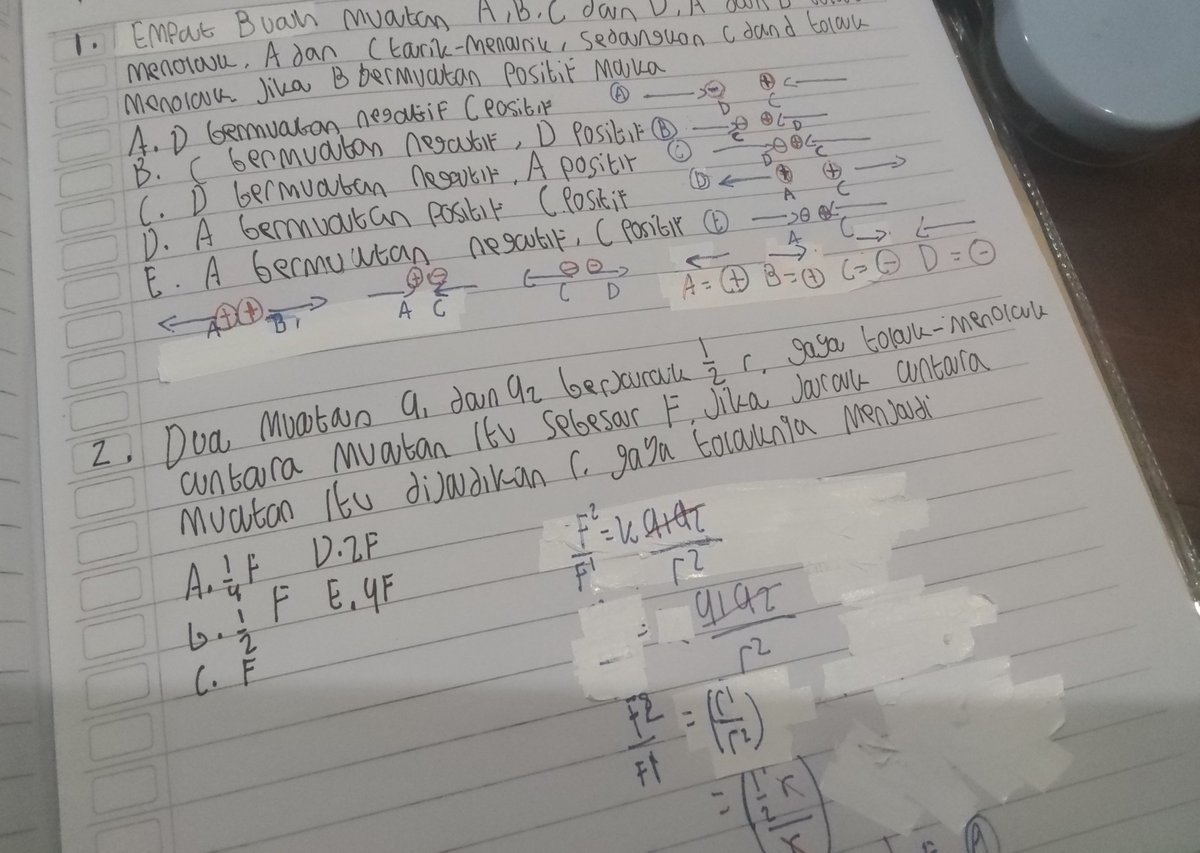 1. Empat Buah Muatan A, B, C dan D. A dan B
menolak, A dan C tarik-menarik, sedangkan C dan d tolak
menolak Jika B bermuatan Positif Maka
A. D bermuatan negatif C positif
B. C bermuatan negatif, D Positif
C. D bermuatan negatif, A positif
D. A bermuatan positif C Positif
E. A bermuatan negatif, C positif
A - D + C
B - C + D
C - D + C
D + A + C
E - A + C
A + + B
+ - A C
- - C D
A = + B = + C = - D = -
2. Dua Muatan q1 dan q2 berjarak 1/2 r. gaya tolak-menolak
antara muatan itu sebesar F. Jika Jarak antara
Muatan itu dijadikan r. gaya tolaknya Menjadi
A. 1/4 F D. 2F
b. 1/2 F E. 4F
C. F
F2/F1 = k q1q2/r2
= q1q2/r2
F2/F1 = (r1/r2)
= (1/2 r/r)
F A